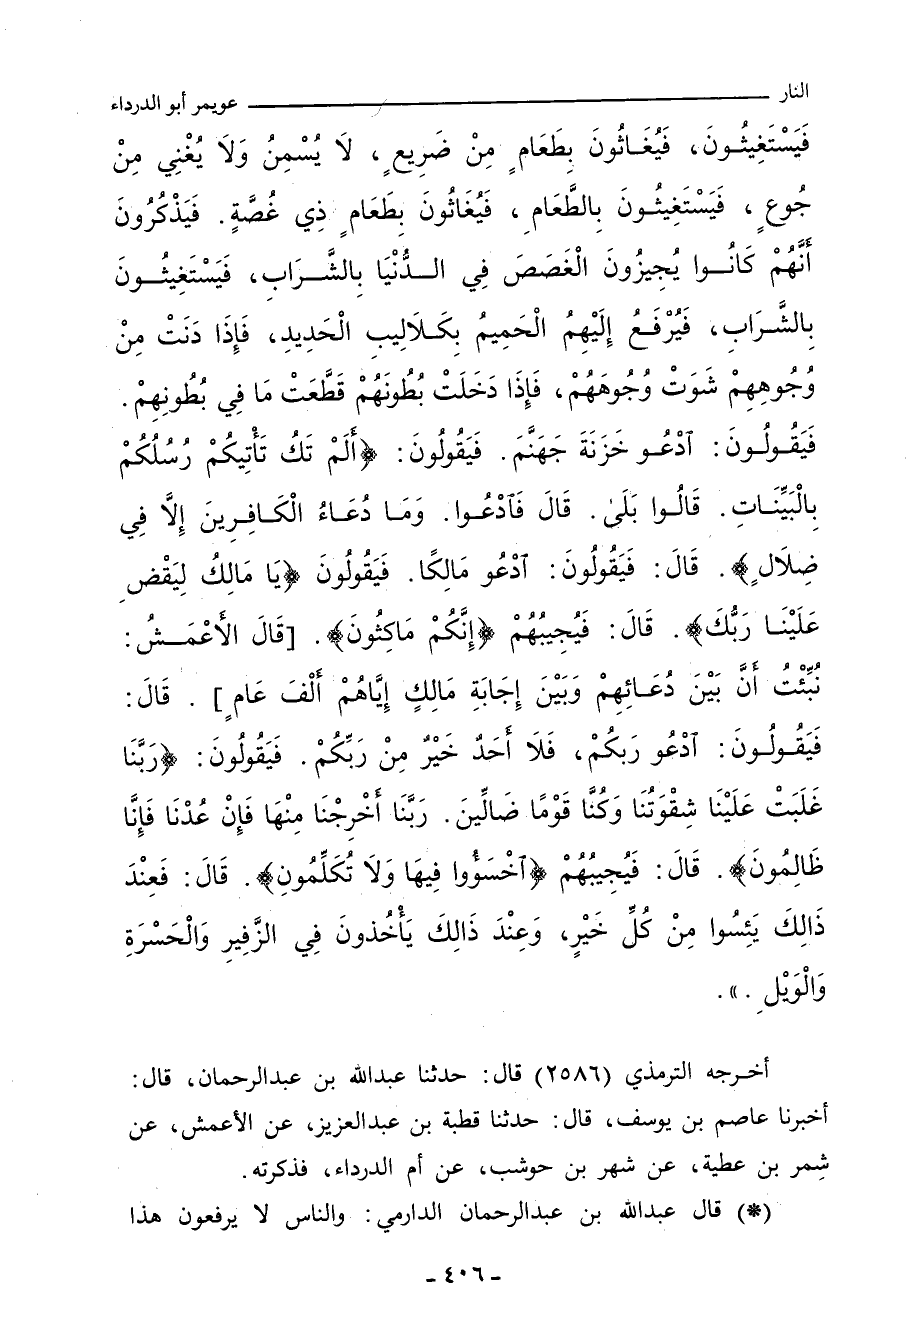 النار ــــــــــ عويمر أبو الدرداء
فَيَسْتَغِيثُونَ، فَيُغَاثُونَ بِطَعَامٍ مِنْ ضَرِيعٍ، لَا يُسْمِنُ وَلَا يُغْنِي مِنْ
جُوعٍ، فَيَسْتَغِيثُونَ بِالطَّعَامِ، فَيُغَاثُونَ بِطَعَامٍ ذِي غُصَّةٍ. فَيَذْكُرُونَ
أَنَّهُمْ كَانُوا يُجِيزُونَ الْغَصَصَ فِي الدُّنْيَا بِالشَّرَابِ، فَيَسْتَغِيثُونَ
بِالشَّرَابِ، فَيُرْفَعُ إِلَيْهِمُ الْحَمِيمُ بِكَلَالِيبِ الْحَدِيدِ، فَإِذَا دَنَتْ مِنْ
وُجُوهِهِمْ شَوَتْ وُجُوهَهُمْ، فَإِذَا دَخَلَتْ بُطُونَهُمْ قَطَّعَتْ مَا فِي بُطُونِهِمْ.
فَيَقُولُونَ: ٱدْعُو خَزَنَةَ جَهَنَّمَ. فَيَقُولُونَ: ﴿أَلَمْ تَكُ تَأْتِيكُمْ رُسُلُكُمْ
بِالْبَيِّنَاتِ. قَالُوا بَلَىٰ. قَالَ فَٱدْعُوا. وَمَا دُعَاءُ الْكَافِرِينَ إِلَّا فِي
ضِلَالٍ﴾. قَالَ: فَيَقُولُونَ: ٱدْعُو مَالِكًا. فَيَقُولُونَ ﴿يَا مَالِكُ لِيَقْضِ
عَلَيْنَا رَبُّكَ﴾. قَالَ: فَيُجِيبُهُمْ ﴿إِنَّكُمْ مَاكِثُونَ﴾. [قَالَ الأَعْمَشُ:
نُبِّئْتُ أَنَّ بَيْنَ دُعَائِهِمْ وَبَيْنَ إِجَابَةِ مَالِكٍ إِيَّاهُمْ أَلْفَ عَامٍ]. قَالَ:
فَيَقُولُونَ: ٱدْعُو رَبَكُمْ، فَلَا أَحَدٌ خَيْرٌ مِنْ رَبِّكُمْ. فَيَقُولُونَ: ﴿رَبَّنَا
غَلَبَتْ عَلَيْنَا شِقْوَتُنَا وَكُنَّا قَوْمًا ضَالِّينَ. رَبَّنَا أَخْرِجْنَا مِنْهَا فَإِنْ عُدْنَا فَإِنَّا
ظَالِمُونَ﴾. قَالَ: فَيُجِيبُهُمْ ﴿ٱخْسَؤُوا فِيهَا وَلَا تُكَلِّمُونِ﴾. قَالَ: فَعِنْدَ
ذَالِكَ يَئِسُوا مِنْ كُلِّ خَيْرٍ، وَعِنْدَ ذَالِكَ يَأْخُذونَ فِي الزَّفِيرِ وَالْحَسْرَةِ
وَالْوَيْلِ.».
أخرجه الترمذي (٢٥٨٦) قال: حدثنا عبدالله بن عبدالرحمان، قال:
أخبرنا عاصم بن يوسف، قال: حدثنا قطبة بن عبدالعزيز، عن الأعمش، عن
شِمر بن عطية، عن شهر بن حوشب، عن أم الدرداء، فذكرته.
(*) قال عبدالله بن عبدالرحمان الدارمي: والناس لا يرفعون هذا
- ٤٠٦ -